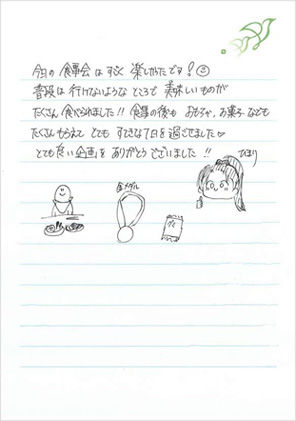 今日の食事会はすごく楽しかったです！
普段は行けないようなところで美味しいものが
たくさん食べられました!! 食事の後も おもちゃ、お菓子なども
たくさんもらえて とても すてきな1日を過ごせました♡
とても良い企画を ありがとうございました!!
ひまり
金メダル